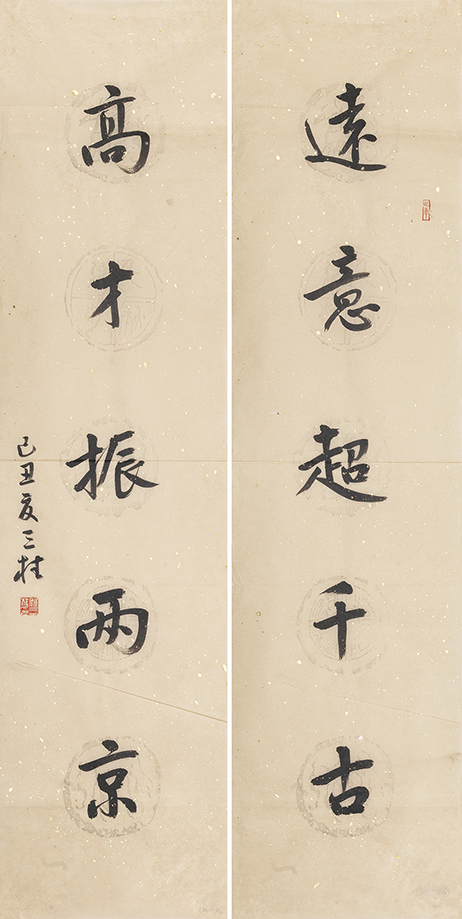 遠意超千古
高才振两京
己丑夏三柱